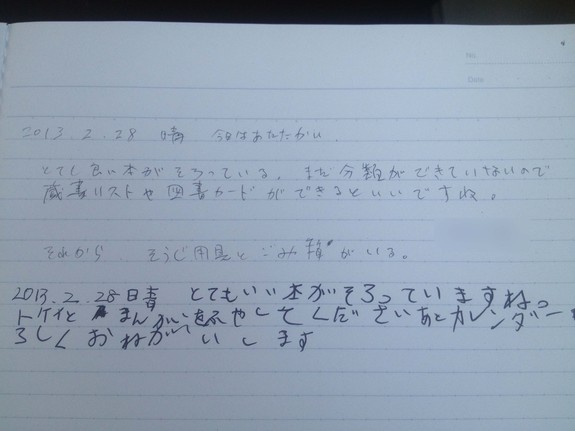 No.
Date
2013.2.28 晴 今日はあたたかい.
とても良い本がそろっている. まだ分類ができていないので
蔵書リストや図書カードができるといいですね。
それから、そうじ用具とごみ箱がいる。
2013.2.28日晴 とてもいい本がそろっていますねっ
トケイと まんがをふやしてくださいあとカレンダー
ろしくおねがいします